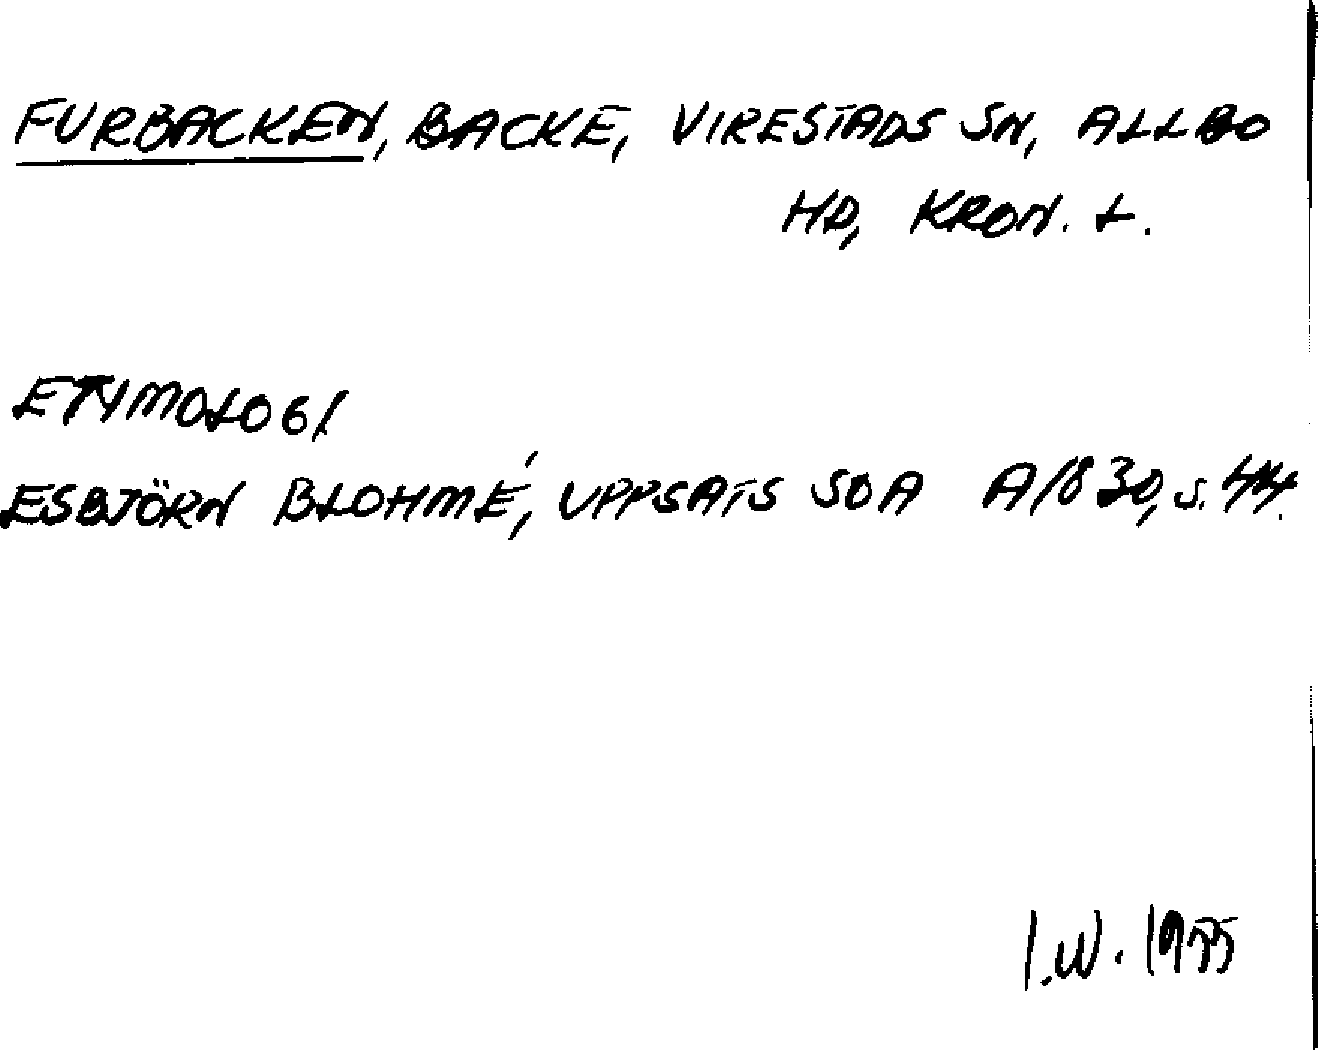 FURBACKEN, BACKE, VIRESTADS SN, ALLBO
HD, KRON. L.
ETYMOLOGI
ESBJÖRN BLOHMÉ, UPPSATS SOA A/830, s. 44.
I.W. 1975